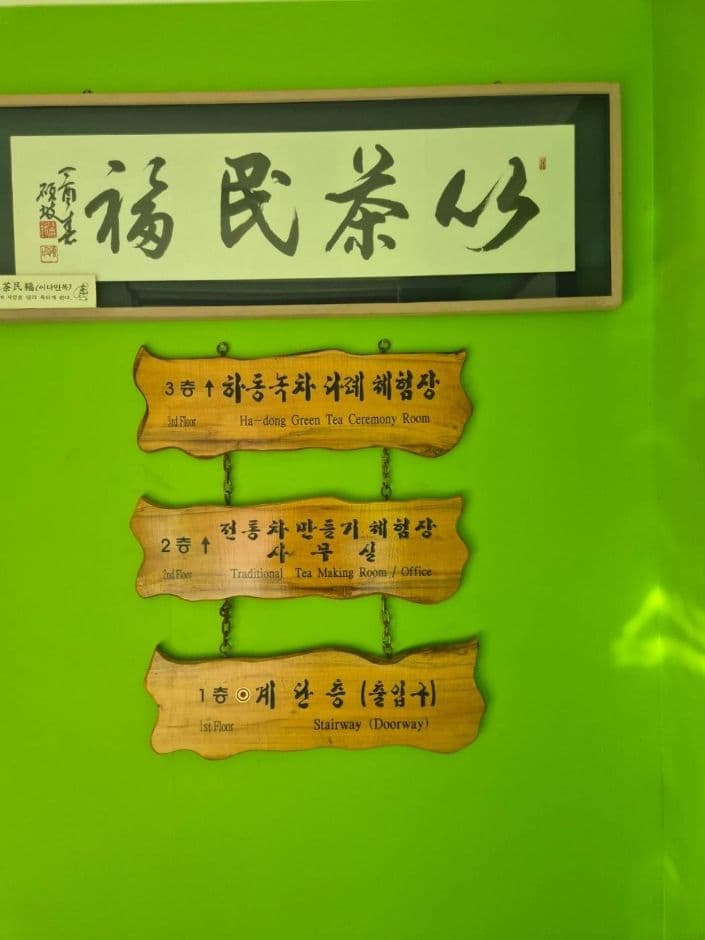 以茶民福
丁酉春
碩坡
茶民福(이다민복)
사람을 널리 복되게 한다.
3층 ↑ 하동녹차 다례 체험장
3rd Floor Ha-dong Green Tea Ceremony Room
2층 ↑ 전통차 만들기 체험장
사 무 실
2nd Floor Traditional Tea Making Room / Office
1층 ◎ 계 단 층 (출입구)
1st Floor Stairway (Doorway)